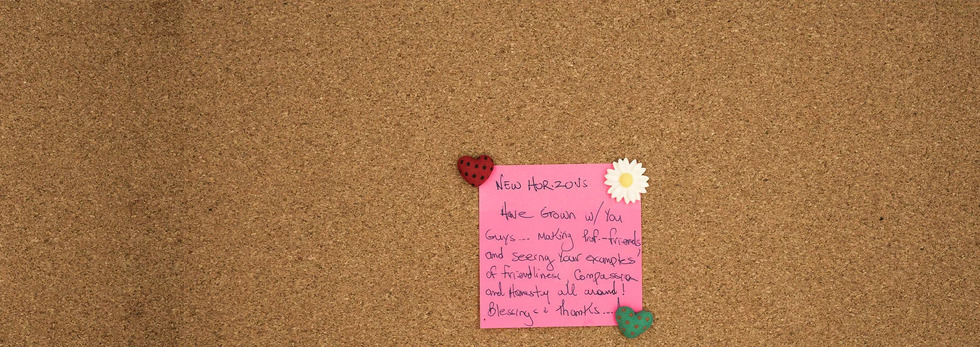 NEW HORIZONS
Have Grown w/ You
Guys... Making Prof-friends
and seeing Your examples
of Friendliness, Compassion
and Honesty all around!
Blessings & Thanks...